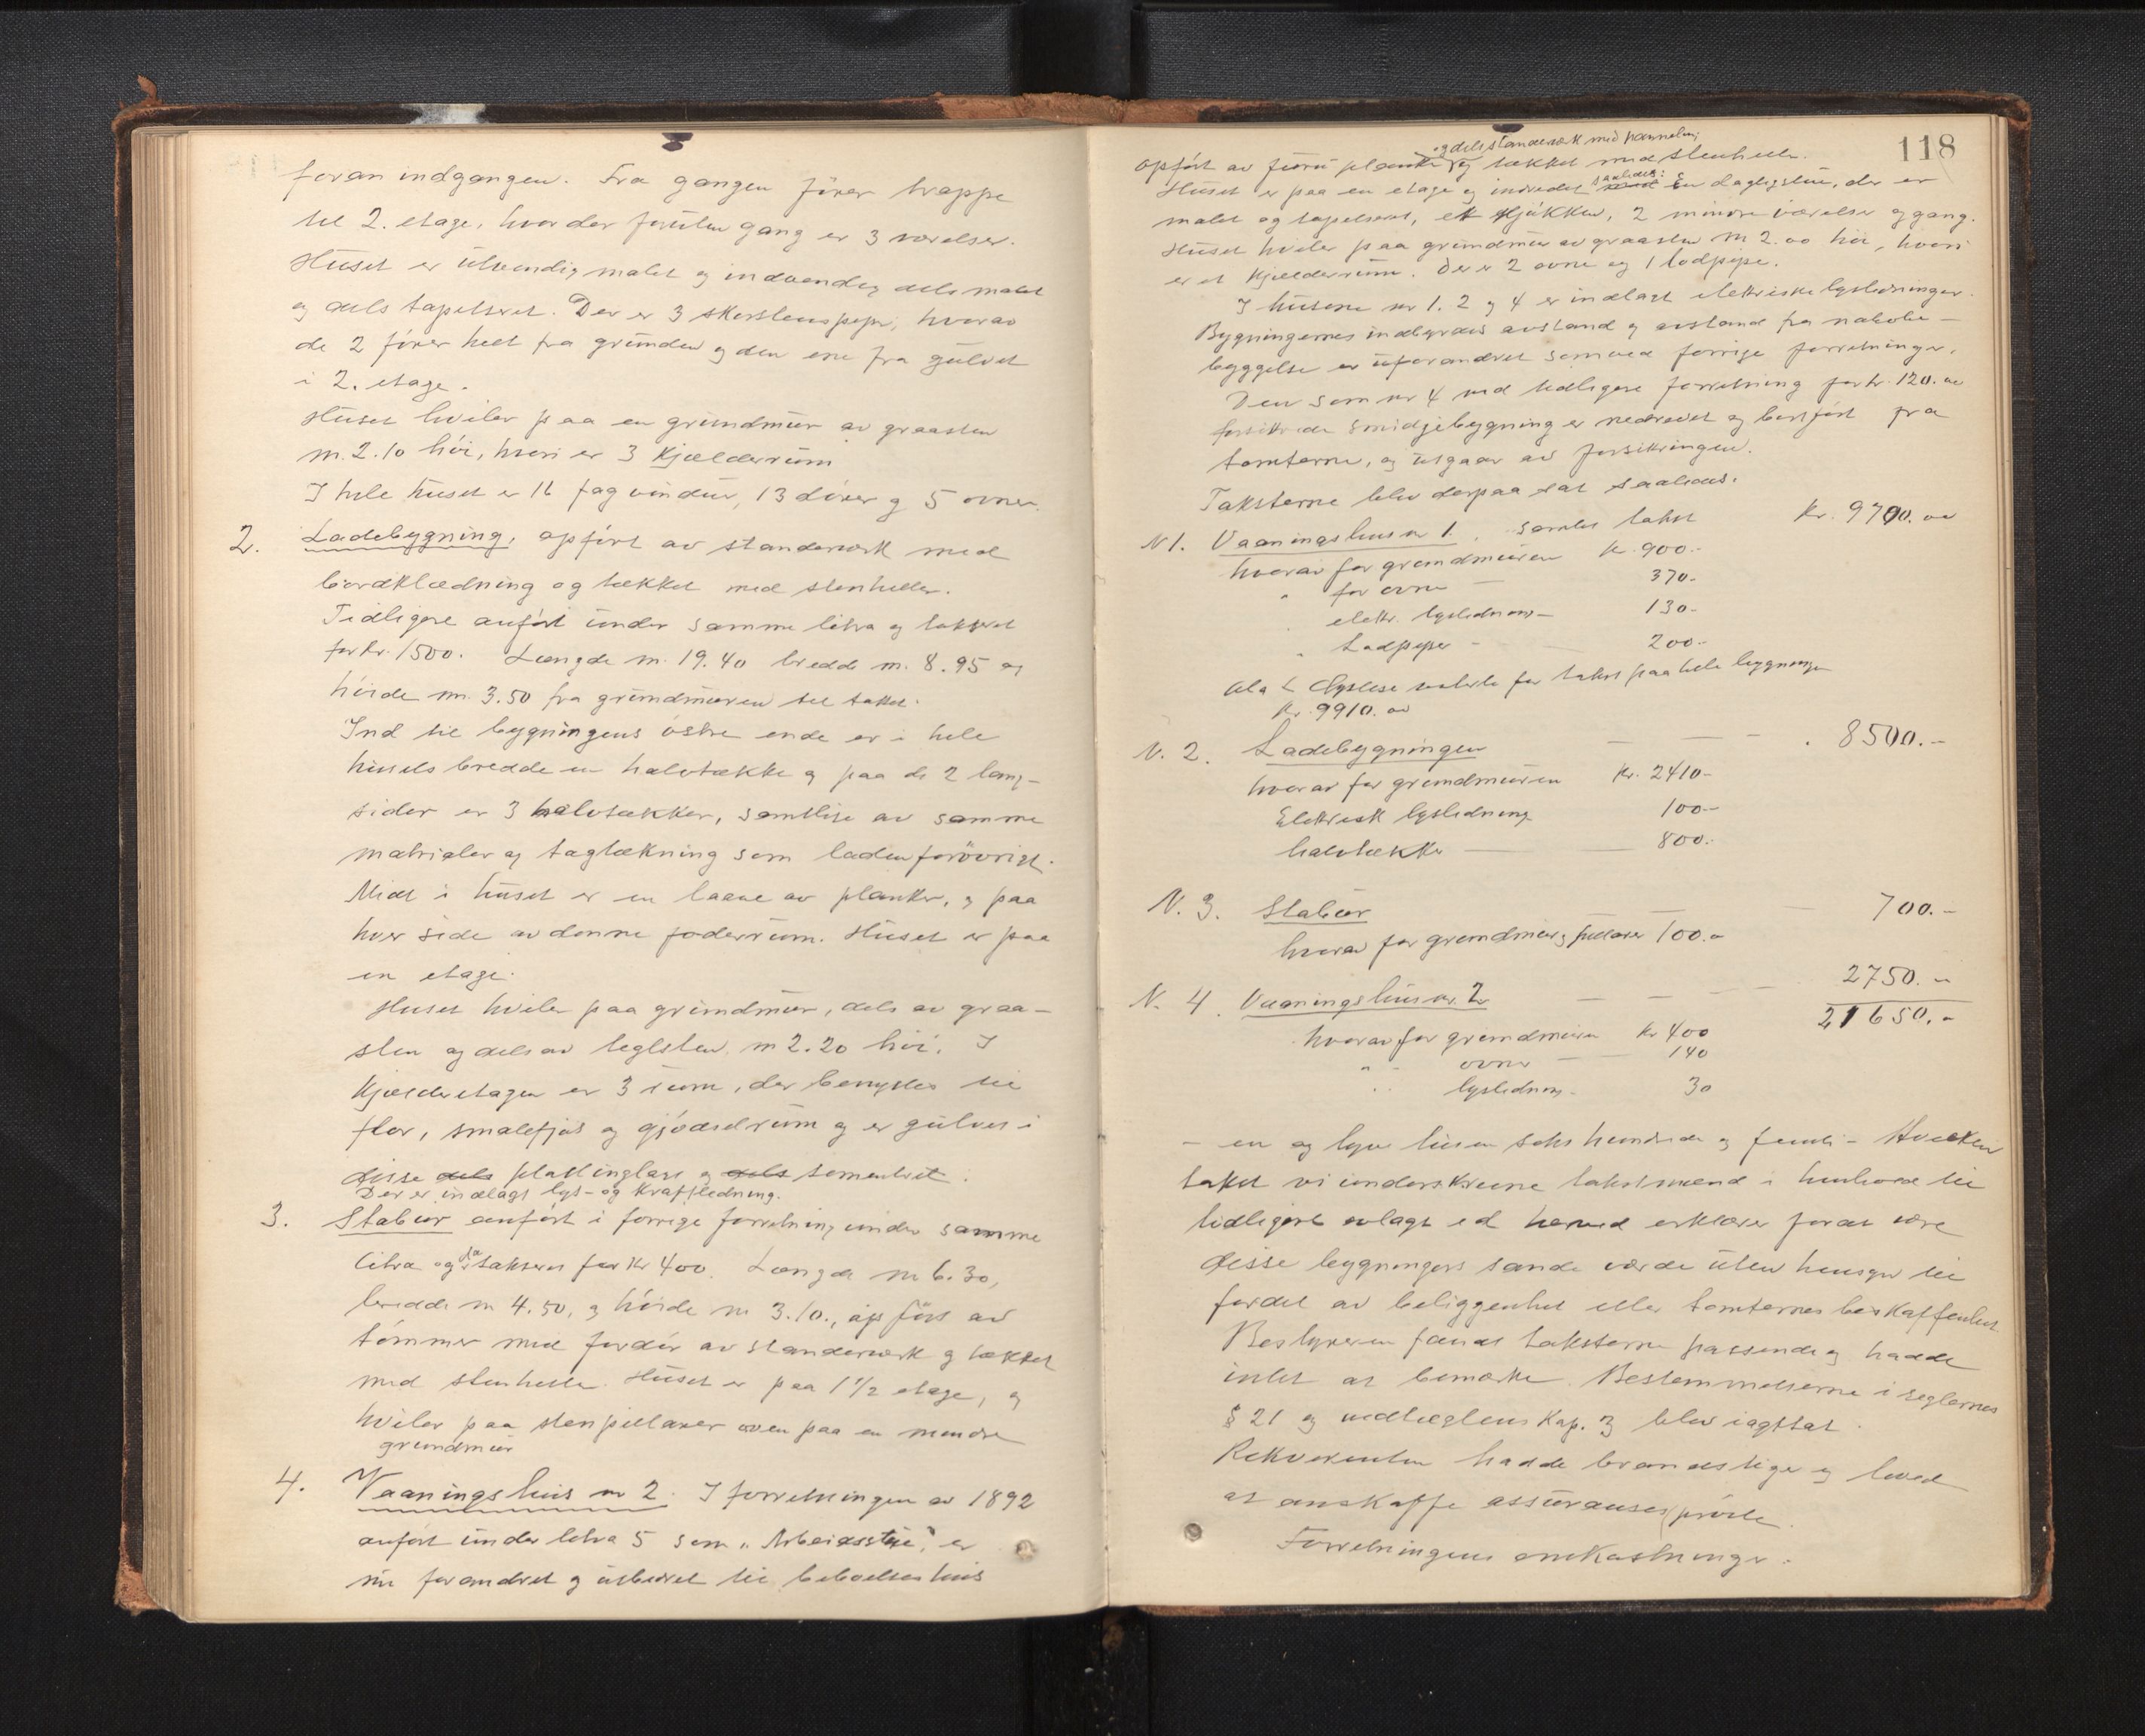 foran indgangen. Fra gangen fører trappe
til 2. etage, hvor der foruten gang er 3 værelser.
Huset er utvendig malet og indvendig dels malet
og dels tapetseret. Der er 3 skorstenspiper, hvorav
de 2 fører helt fra grunden og den ene fra gulvet
i 2. etage.
Huset hviler paa en grundmur av graasten
m. 2.10 høi, hvori er 3 Kjælderrum
I hele huset er 16 fag vinduer, 13 dører og 5 ovner.
2. Ladebygning, opført av standerværk med
bordklædning og tækket med stenheller.
Tidligere anført under samme litra og taksert
for kr. 1500. Længde m. 19.40 bredde m. 8.95 og
høide m. 3.50 fra grundmuren til taket.
Ind til bygningens østre ende er i hele
husets bredde en halvtække og paa de 2 lang-
sider er 3 halvtækker, samtlige av samme
materialer og tagtækning som laden forøvrigt.
Midt i huset er en laave av planker, og paa
hver side av denne foderrum. Huset er paa
en etage.
Huset hviler paa grundmur, dels av graa-
sten og dels av teglsten, m 2.20 høi. I
Kjælderetagen er 3 rum, der benyttes til
flor, smalefjøs og gjødselrum og er gulvet i
disse dels plattinglagt og dels sementert.
Der er indlagt lys- og Kraftledning.
3. Stabur anført i forrige forretning under samme
litra og da takseret for Kr 400. Længde m 6.30,
bredde m 4.50, og høide m 3.10., opført av
tømmer med fordør av standerværk og tækket
med stenheller. Huset er paa 1 1/2 etage, og
hviler paa stenpillarer oven paa en mindre
grundmur
4. Vaaningshus nr 2. I forretningen av 1892
anført under litra 5 som "Arbeidsstue", er
nu forandret og utbedret til beboelseshus
118
og dels standerværk med panneling
opført av furu planker og tækket med stenheller.
Huset er paa en etage og indredet saaledes: En dagligstue, der er
malet og tapetseret, et Kjøkken, 2 mindre værelser og gang.
Huset hviler paa grundmur av graasten m 2.00 høi, hvori
er et Kjælderrum. Der er 2 ovne og 1 lodpipe.
I husene nr 1. 2 og 4 er indlagt elektriske lysledninger.
Bygningernes indbyrdes avstand og avstand fra nabobe-
byggelse er uforandret som ved forrige forretninger.
Den som nr 4 ved tidligere forretning for kr. 120.00
forsikrede smidjebygning er nedrevet og bortført fra
tomterne, og utgaar av forsikringen.
Taksterne blev derpaa sat saaledes:
N 1. Vaaningshus nr 1. samlet takst Kr. 9700.00
hvorav for grundmuren kr. 900.-
" for ovne 370.-
elektr. lysledning - 130.-
" Lodpiper - 200.-
for takst paa hele bygningen
Kr. 9910.00
N. 2. Ladebygningen - - - . 8500.-
hvorav for grundmuren Kr. 2410-
Elektrisk lysledning 100.-
halvtække - - 800.-
N. 3. Stabur - - 700.-
hvorav for grundmur og pillarer 100.-
N. 4. Vaaningshus nr. 2 - - - 2750.-
21650.-
hvorav for grundmuren Kr 400
" - ovner - 140
" lysledning - 30
- en og tyve tusen seks hundrede og femti - Hvilken
takst vi underskrevne takstmænd i henhold til
tidligere avlagt ed herved erklærer for at være
disse bygningers sande værdi uten hensyn til
fordel av beliggenhet eller tomternes beskaffenhet
Bestyreren fandt taksterne passende og hadde
intet at bemærke. Bestemmelserne i reglernes
§ 21 og vedtægtens Kap. 3 blev iagttat.
Rekvirenten hadde brandstige og loved
at anskaffe assurancesprøite.
Forretningens omkostninger.